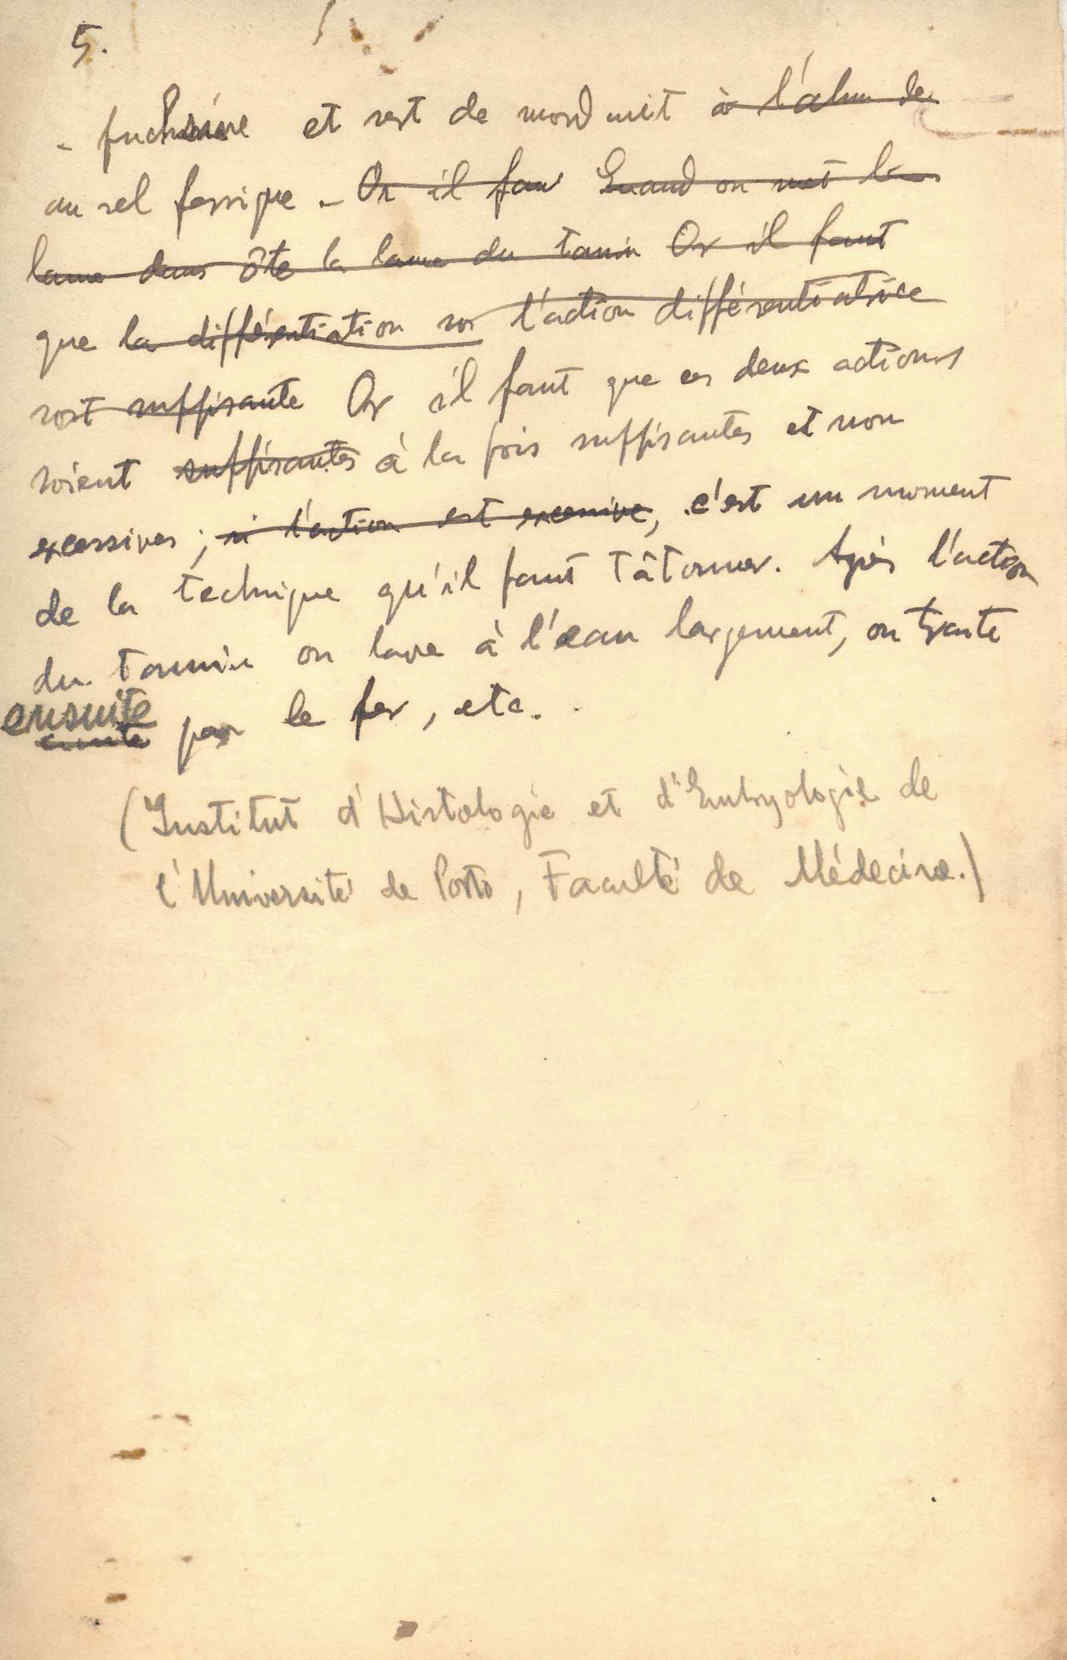 5.
- fuchsine et sert de mordant à l'alun de
au sel ferrique. - Or il faut Quand on met la
lame dans ôte la lame du tanin Or il faut
que la différentiation soi l'action différentiatrice
soit suffisante Or il faut que ces deux actions
soient suffisantes à la fois suffisantes et non
excessives; si l'action est excessive, c'est un moment
de la technique qu'il faut tâtonner. Après l'action
du tannin on lave à l'eau largement, on traite
ensuite
ensuite par le fer, etc.
(Institut d'Histologie et d'Embryologie de
l'Université de Porto, Faculté de Médecine.)